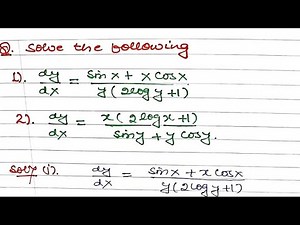 Q. Solve the following
1). dy/dx = sin x + x cos x / y(2 log y + 1)
2). dy/dx = x(2 log x + 1) / sin y + y cos y.
Solⁿ (i). dy/dx = sin x + x cos x / y(2 log y + 1)